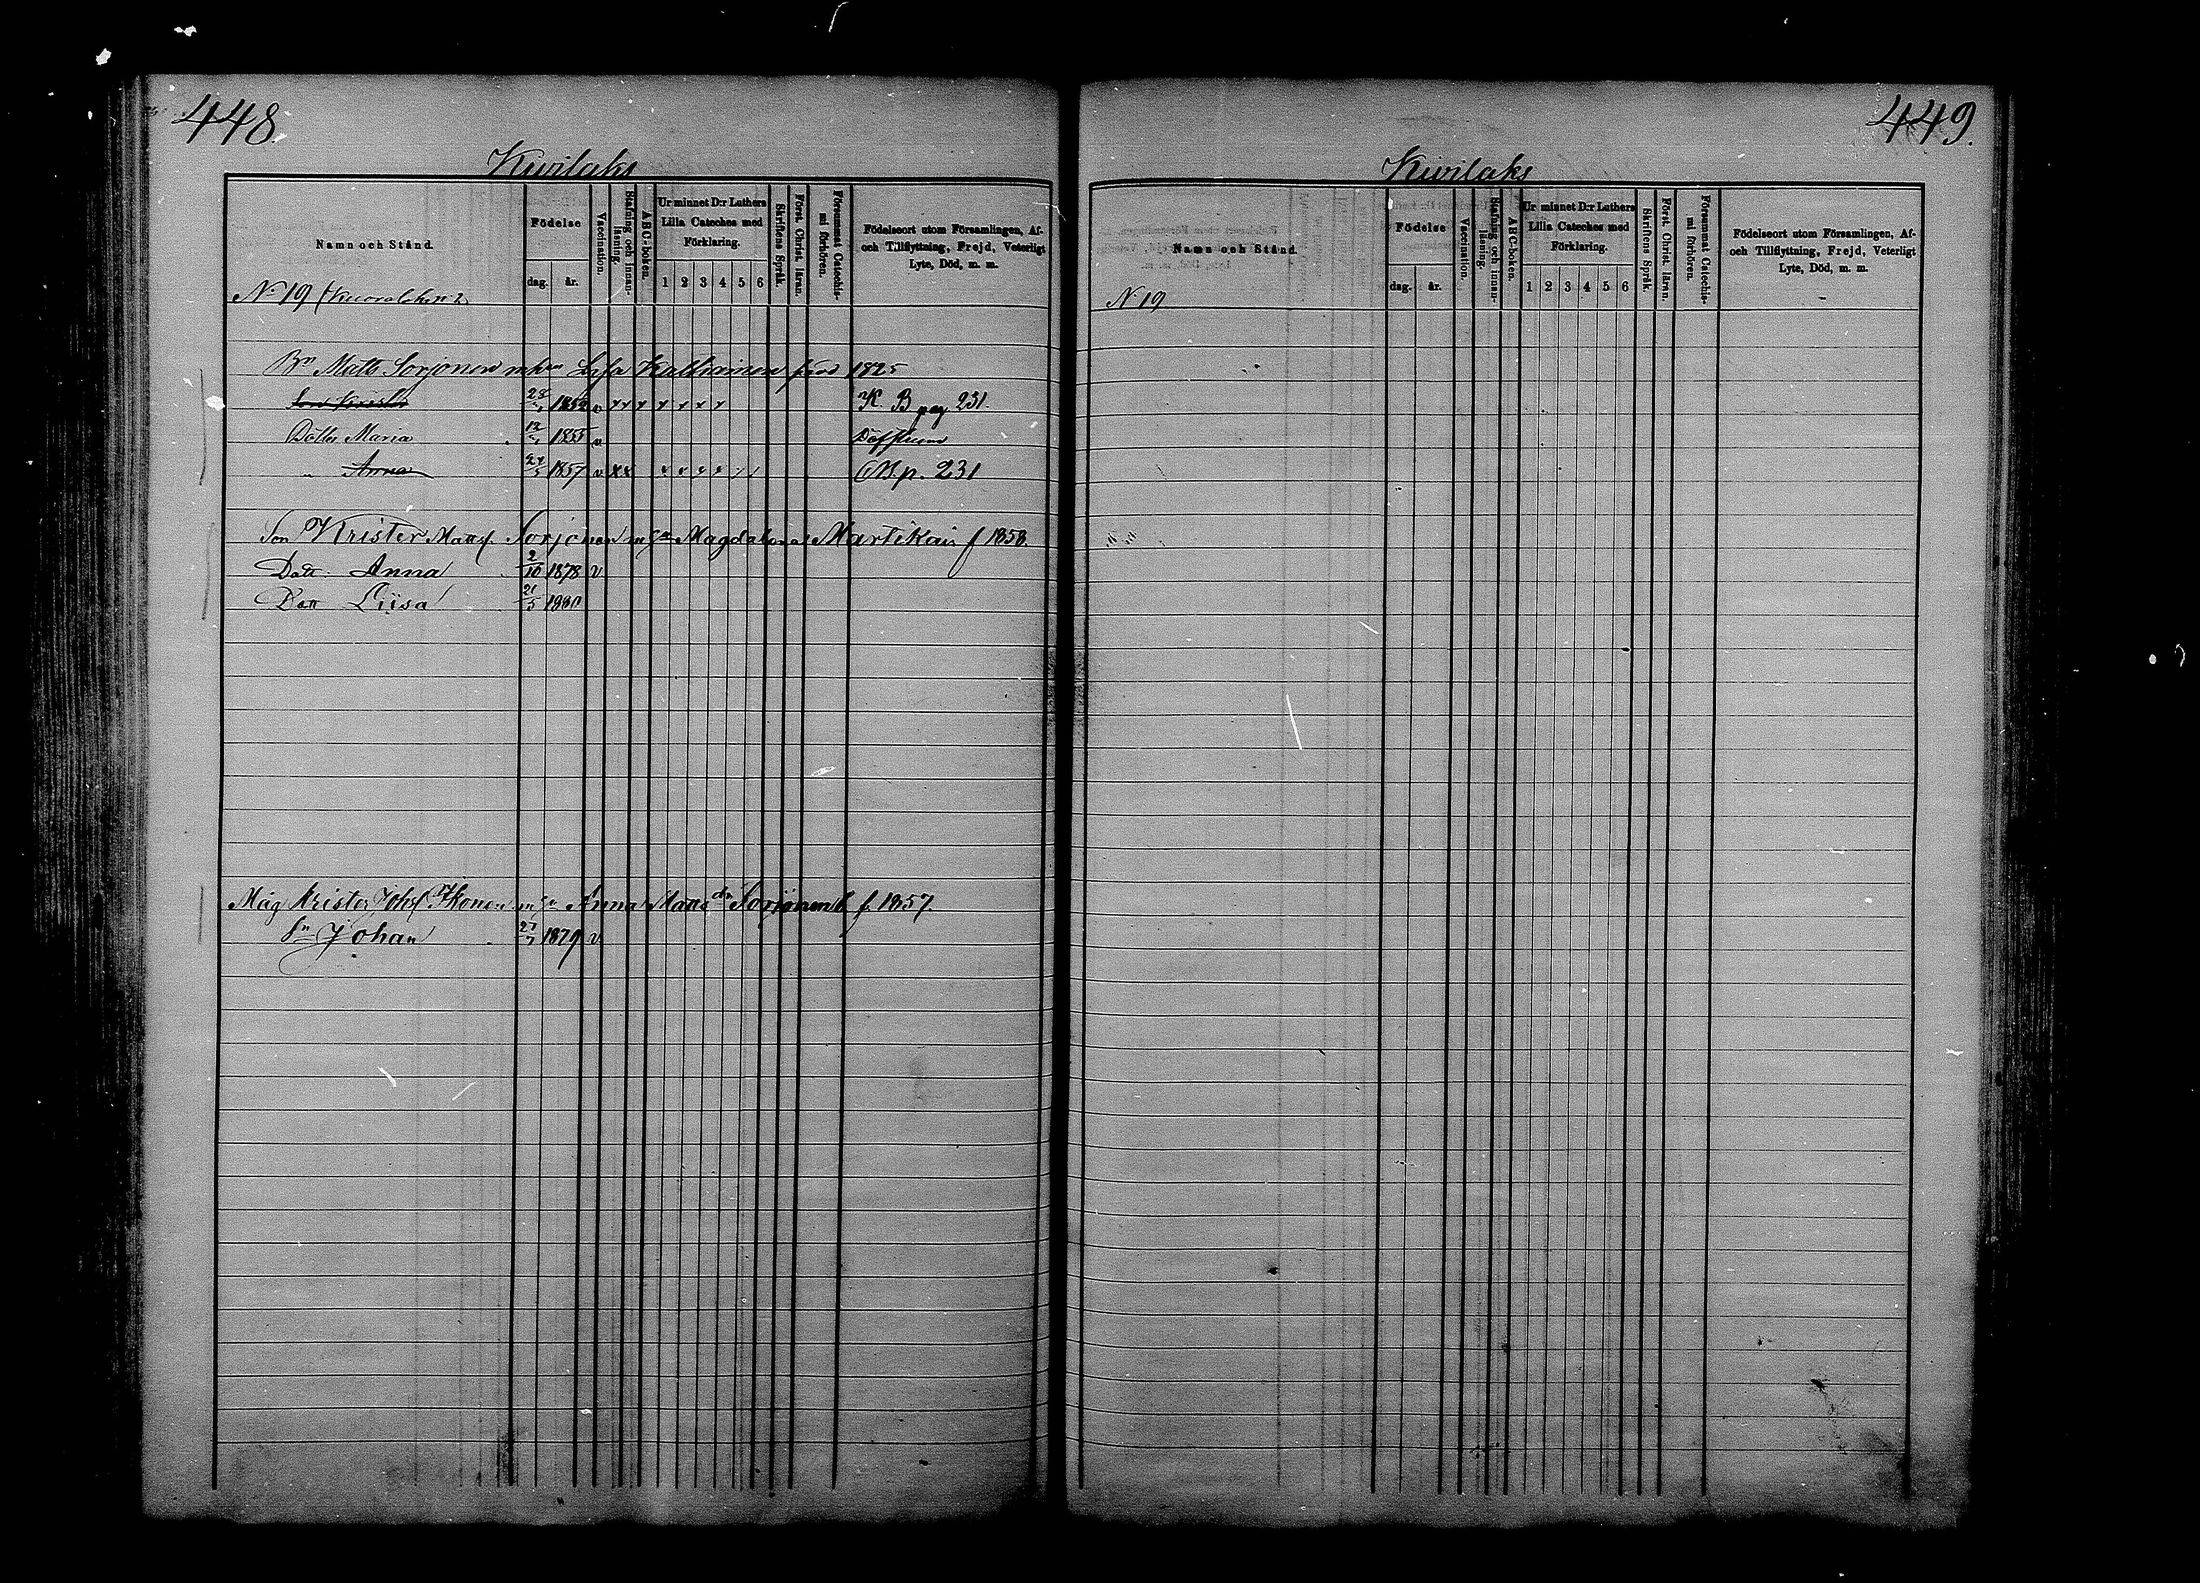 448.
Kivilaks
Namn och Stånd.
Födelse
dag. år.
Vaccination.
Stafning och innanläsning.
ABC-boken.
Ur minnet D:r Luthers Lilla Cateches med Förklaring.
1 2 3 4 5 6
Skriftens Språk.
Först. Christ. läran.
Försummat Catechismi förhören.
Födelseort utom Församlingen, Af- och Tillflyttning, Frejd, Veterligt Lyte, Död, m. m.
N 19
Bn Matts Sorjonen m hu Lisa 1825
Son Krister 1852 v x x x x x x x K. B pag 231.
Dotter Maria 12 1855 v Döfstum
" Anna 24/5 1857 v x x x x x x / / p. 231
Son Krister Matts. Sorjonen m hu Magdalena Martikain f 1858.
Dott. Anna 2/10 1878 v
Dott Liisa 21/5 1880
Måg Krister Johsf Ikonen m hu Anna Matts dr Sorjonen f. 1857.
Sn Johan 1879 v
449.
Kivilaks
Namn och Stånd.
Födelse
dag. år.
Vaccination.
Stafning och innanläsning.
ABC-boken.
Ur minnet D:r Luthers Lilla Cateches med Förklaring.
1 2 3 4 5 6
Skriftens Språk.
Först. Christ. läran.
Försummat Catechismi förhören.
Födelseort utom Församlingen, Af- och Tillflyttning, Frejd, Veterligt Lyte, Död, m. m.
N 19